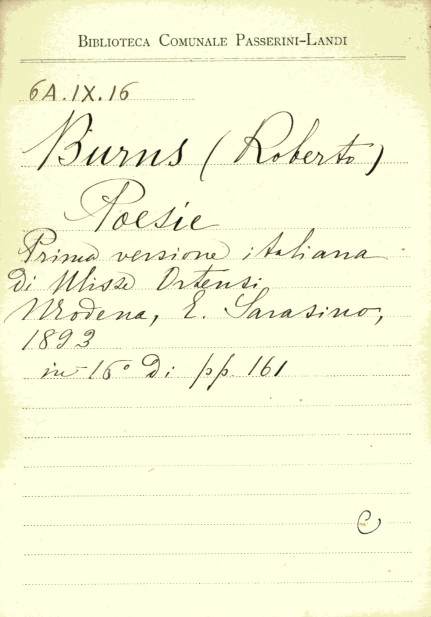 BIBLIOTECA COMUNALE PASSERINI-LANDI
6A.IX.16
Burns (Roberto)
Poesie
Prima versione italiana
di Ulisse Ortensi
Modena, E. Sarasino,
1893
in-16° di pp. 161
C